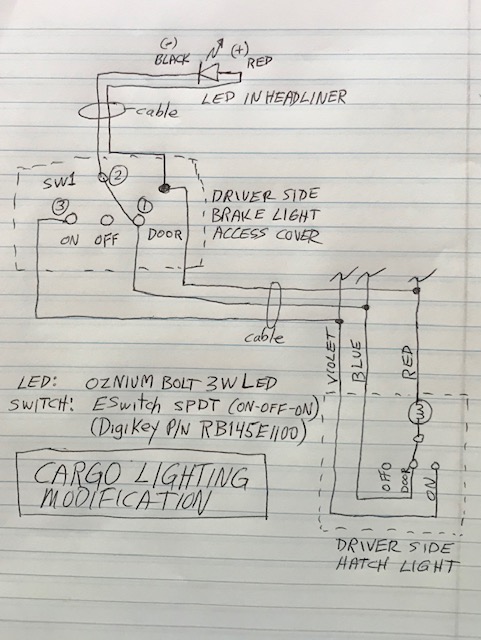 (-)
BLACK
(+)
RED
LED IN HEADLINER
cable
SW1
2
3
1
ON OFF DOOR
DRIVER SIDE
BRAKE LIGHT
ACCESS COVER
cable
VIOLET
BLUE
RED
LED: OZNIUM BOLT 3W LED
SWITCH: ESWITCH SPDT (ON-OFF-ON)
(DigiKey P/N RB145E1100)
CARGO LIGHTING
MODIFICATION
OFF
DOOR
ON
DRIVER SIDE
HATCH LIGHT